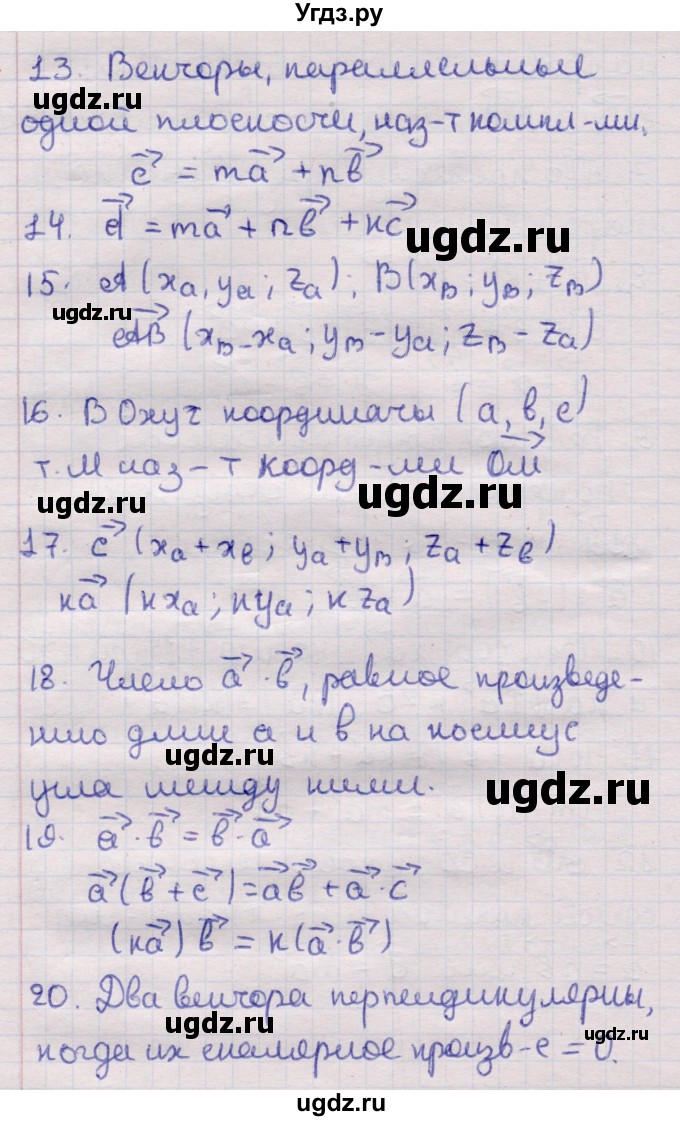 Угдз.ру
13. Векторы, параллельные
ugdz.ru
одной плоскости, наз-т компл-ми.
c⃗ = ma⃗ + nb⃗
14. d⃗ = ma⃗ + nb⃗ + кc⃗
ugdz.ru
15. A(xₐ, yₐ; zₐ); B(x_B; y_B; z_B)
ugdz.ru
AB⃗ (x_B - xₐ; y_B - yₐ; z_B - zₐ)
16. В Oxyz координаты (a, в, c)
т. М наз-т коорд-ми OM⃗
ugdz.ru
ugdz.ru
17. c⃗ (xₐ + x_в; yₐ + y_B; zₐ + z_в)
кa⃗ (кxₐ; кyₐ; кzₐ)
ugdz.ru
18. Число a⃗ · b⃗, равное произведе-
нию длин a и в на косинус
ugdz.ru
угла между ними.
ugdz.ru
19. a⃗ · b⃗ = b⃗ · a⃗
a⃗(b⃗ + c⃗) = a⃗b⃗ + a⃗ · c⃗
(кa⃗)b⃗ = к(a⃗ · b⃗)
20. Два вектора перпендикулярны,
ugdz.ru
когда их скалярное произв-е = 0.
ugdz.ru